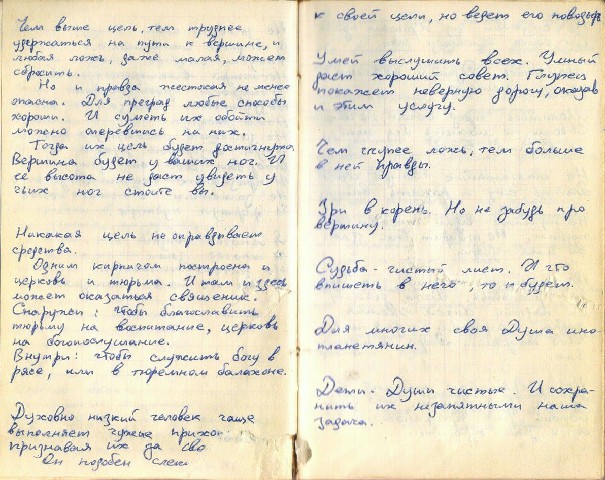 Чем выше цель, тем труднее
удержаться на пути к вершине, и
любая ложь, даже малая, может
сбросить.
Но и правда жестокая не менее
опасна. Для преград любые способы
хороши. И суметь их обойти
можно опершись на них.
Тогда их цель будет достигнута.
Вершина будет у ваших ног. И
её высота не даст увидеть у
чьих ног стоите вы.
Никакая цель не оправдывает
средства.
Одним кирпичом построена и
церковь и тюрьма. И там и здесь
может оказаться священик.
Снаружи: чтобы благославить
тюрьму на воспитание, церковь
на богопослушание.
Внутри: чтобы служить богу в
рясе, или в тюремном балахоне.
Духовно низкий человек чаще
выполняет чужие прихо
признавая их да сво
Он подобен слеп
к своей цели, но ведет его поводырь
Умей выслушить всех. Умный
даст хороший совет. Глупец
покажет неверную дорогу, оказав
и этим услугу.
Чем глупее ложь, тем больше
в ней правды.
Зри в корень. Но не забудь про
вершину.
Судьба - чистый лист. И что
впишеть в него, то и будет.
Для многих своя Душа ино-
планетянин.
Дети - Души чистые. И сохра-
нить их незапятными наша
задача.